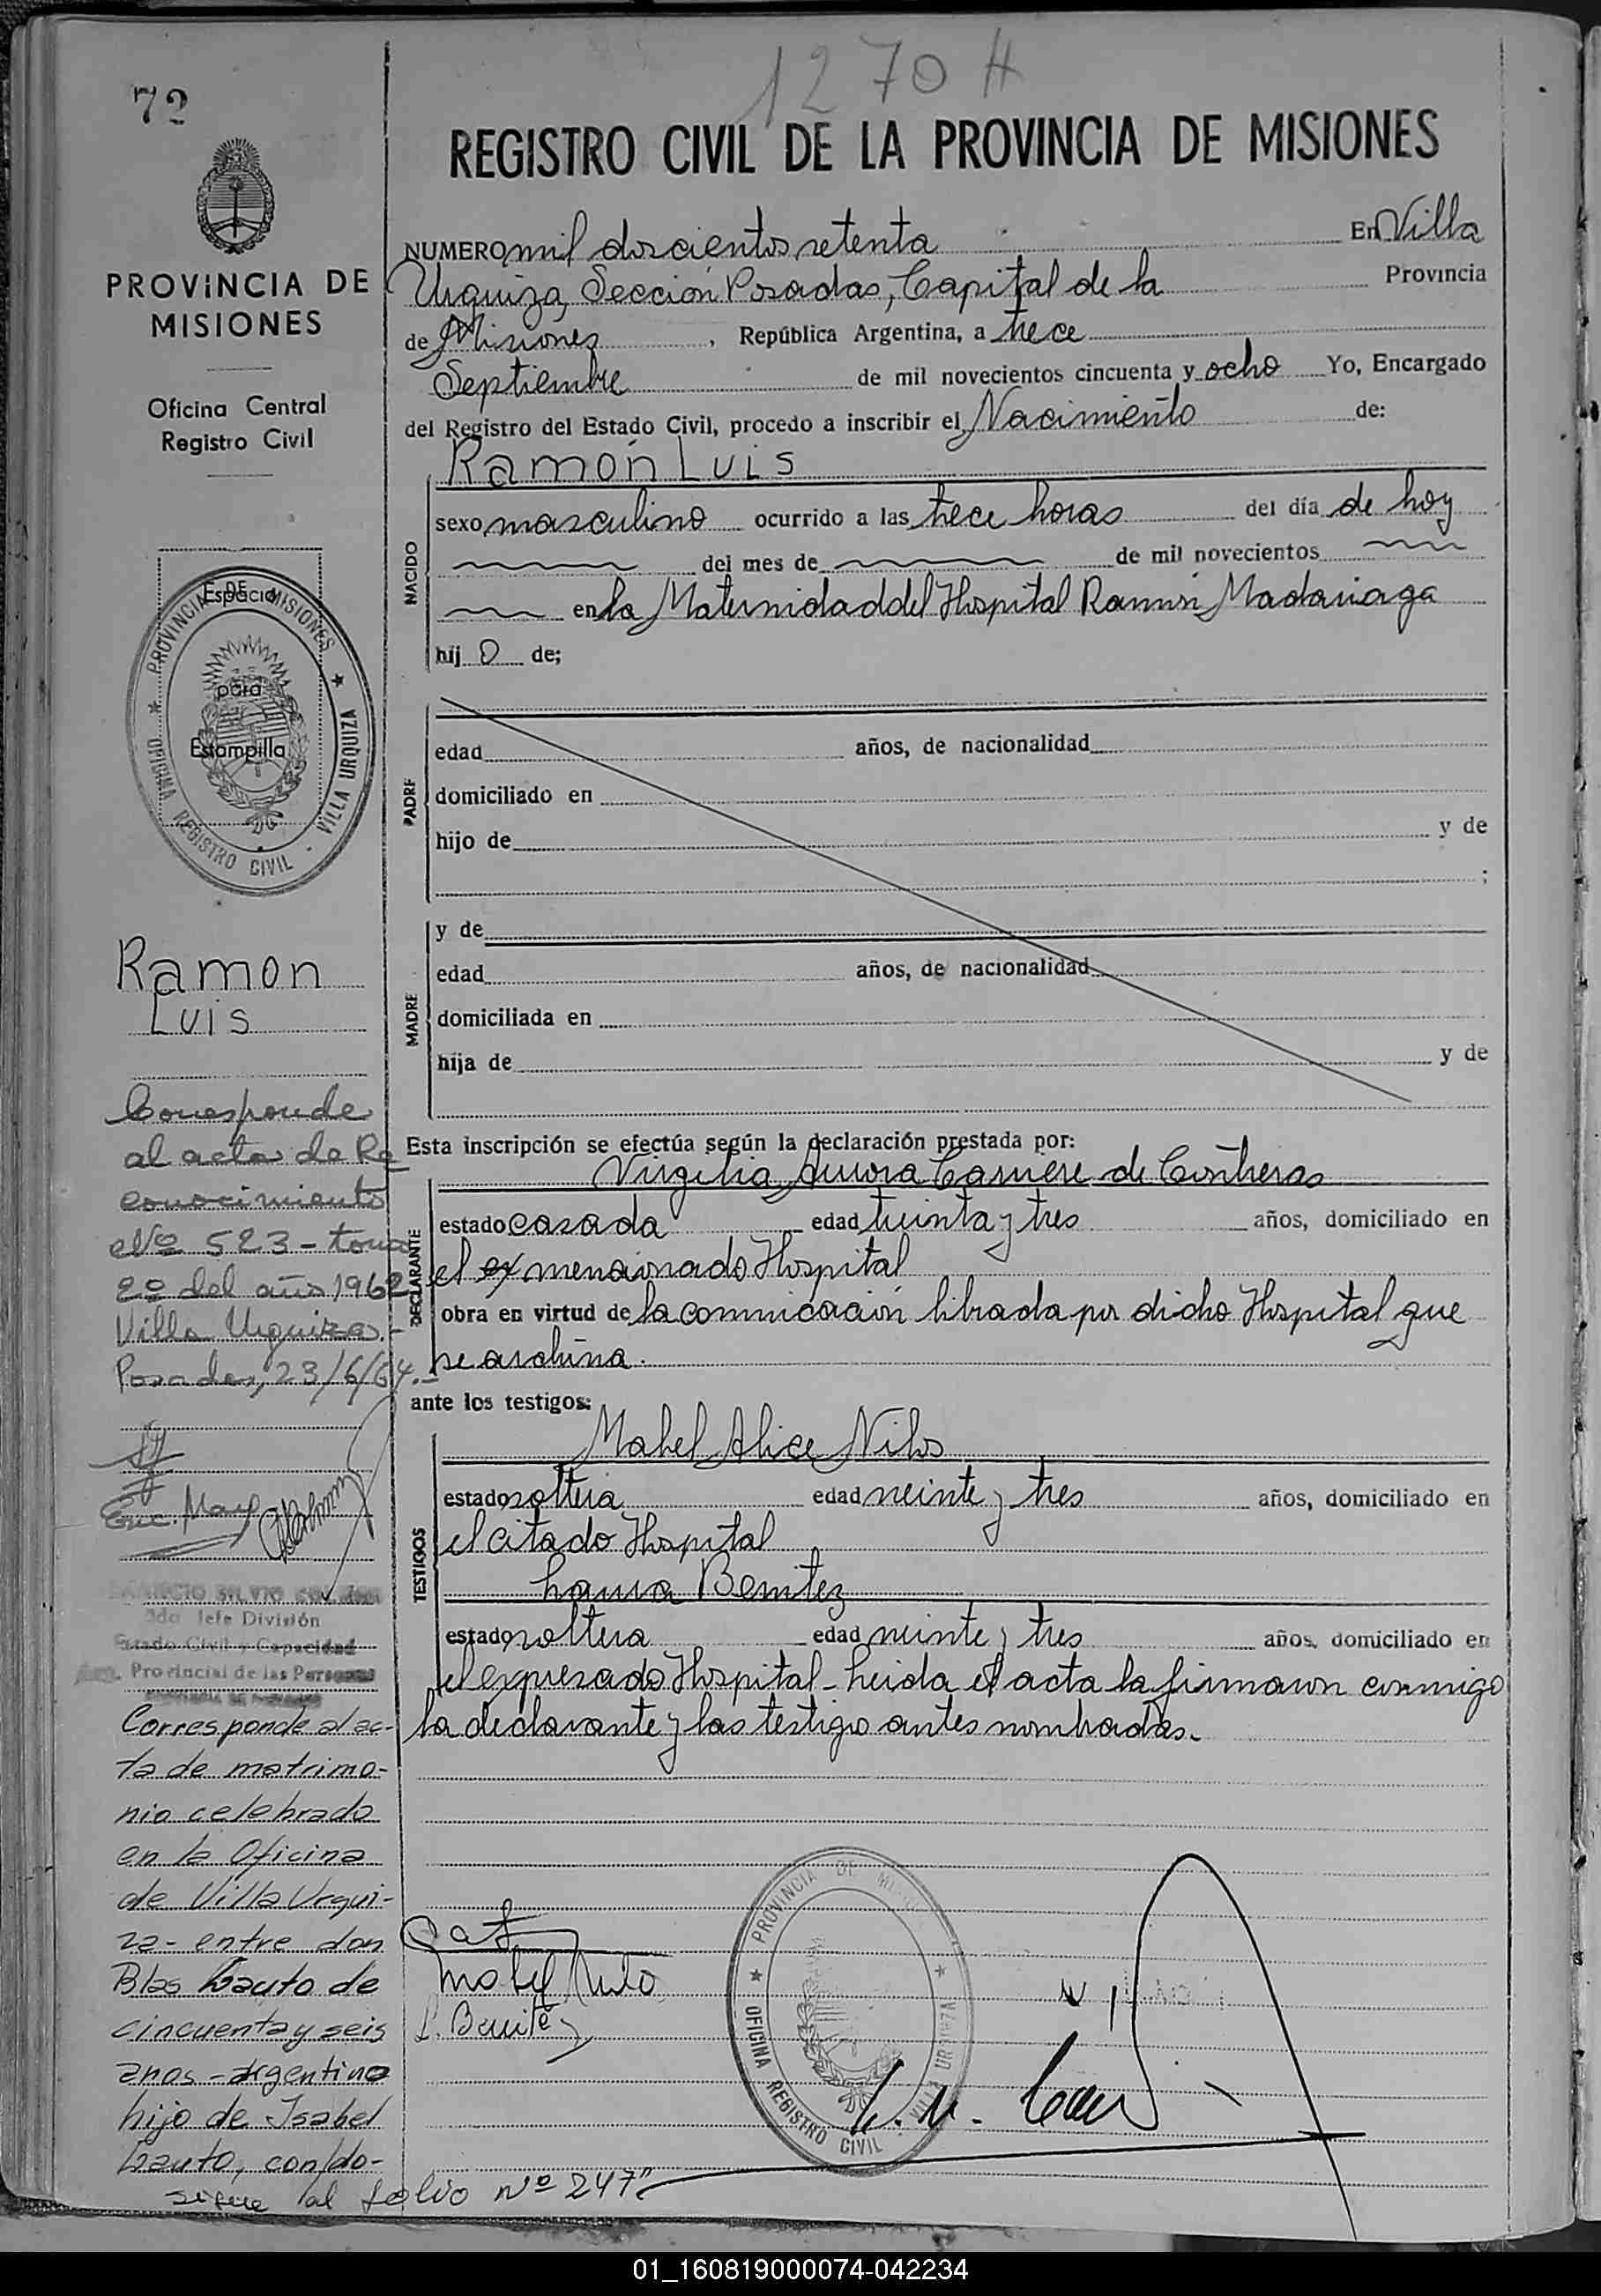 72
1270 H
REGISTRO CIVIL DE LA PROVINCIA DE MISIONES
PROVINCIA DE
MISIONES
Oficina Central
Registro Civil
NUMERO mil doscientos setenta En Villa
Urquiza, Sección Posadas, Capital de la Provincia
de Misiones, República Argentina, a trece
Septiembre de mil novecientos cincuenta y ocho Yo, Encargado
del Registro del Estado Civil, procedo a inscribir el Nacimiento de:
Ramón Luis
NACIDO
sexo masculino ocurrido a las trece horas del día de hoy
del mes de de mil novecientos
en la Maternidad del Hospital Ramón Madariaga
hij o de;
Espacio
para
Estampilla
PROVINCIA DE MISIONES
OFICINA REGISTRO CIVIL - VILLA URQUIZA
PADRE
edad años, de nacionalidad
domiciliado en
hijo de y de
;
MADRE
y de
edad años, de nacionalidad
domiciliada en
hija de y de
Ramon
Luis
Corresponde
al acta de Re
conocimiento
Nº 523 - tomo
2º del año 1962
Villa Urquiza.-
Posadas, 23/6/64.-
Enc. May
2do Jefe División
Estado Civil y Capacidad
Provincial de las Personas
Esta inscripción se efectúa según la declaración prestada por:
DECLARANTE
Virgilia Aurora Carnere de Contreras
estado casada edad treinta y tres años, domiciliado en
el ex mencionado Hospital
obra en virtud de la comunicación librada por dicho Hospital que
se archiva.
ante los testigos:
TESTIGOS
Mabel Alice Nilos
estado soltera edad veinte y tres años, domiciliado en
el citado Hospital
Laura Benitez
estado soltera edad veinte y tres años, domiciliado en
el expresado Hospital - Leida el acta la firmaron conmigo
la declarante y las testigo antes nombradas.
Corresponde al ac-
ta de matrimo-
nio celebrado
en la Oficina
de Villa Urqui-
za- entre don
Blas Bauto de
cincuenta y seis
anos - argentino
hijo de Isabel
Bauto, con/do-
sigue al folio Nº 247"
L. Benitez
PROVINCIA DE MISIONES
OFICINA REGISTRO CIVIL
01_160819000074-042234